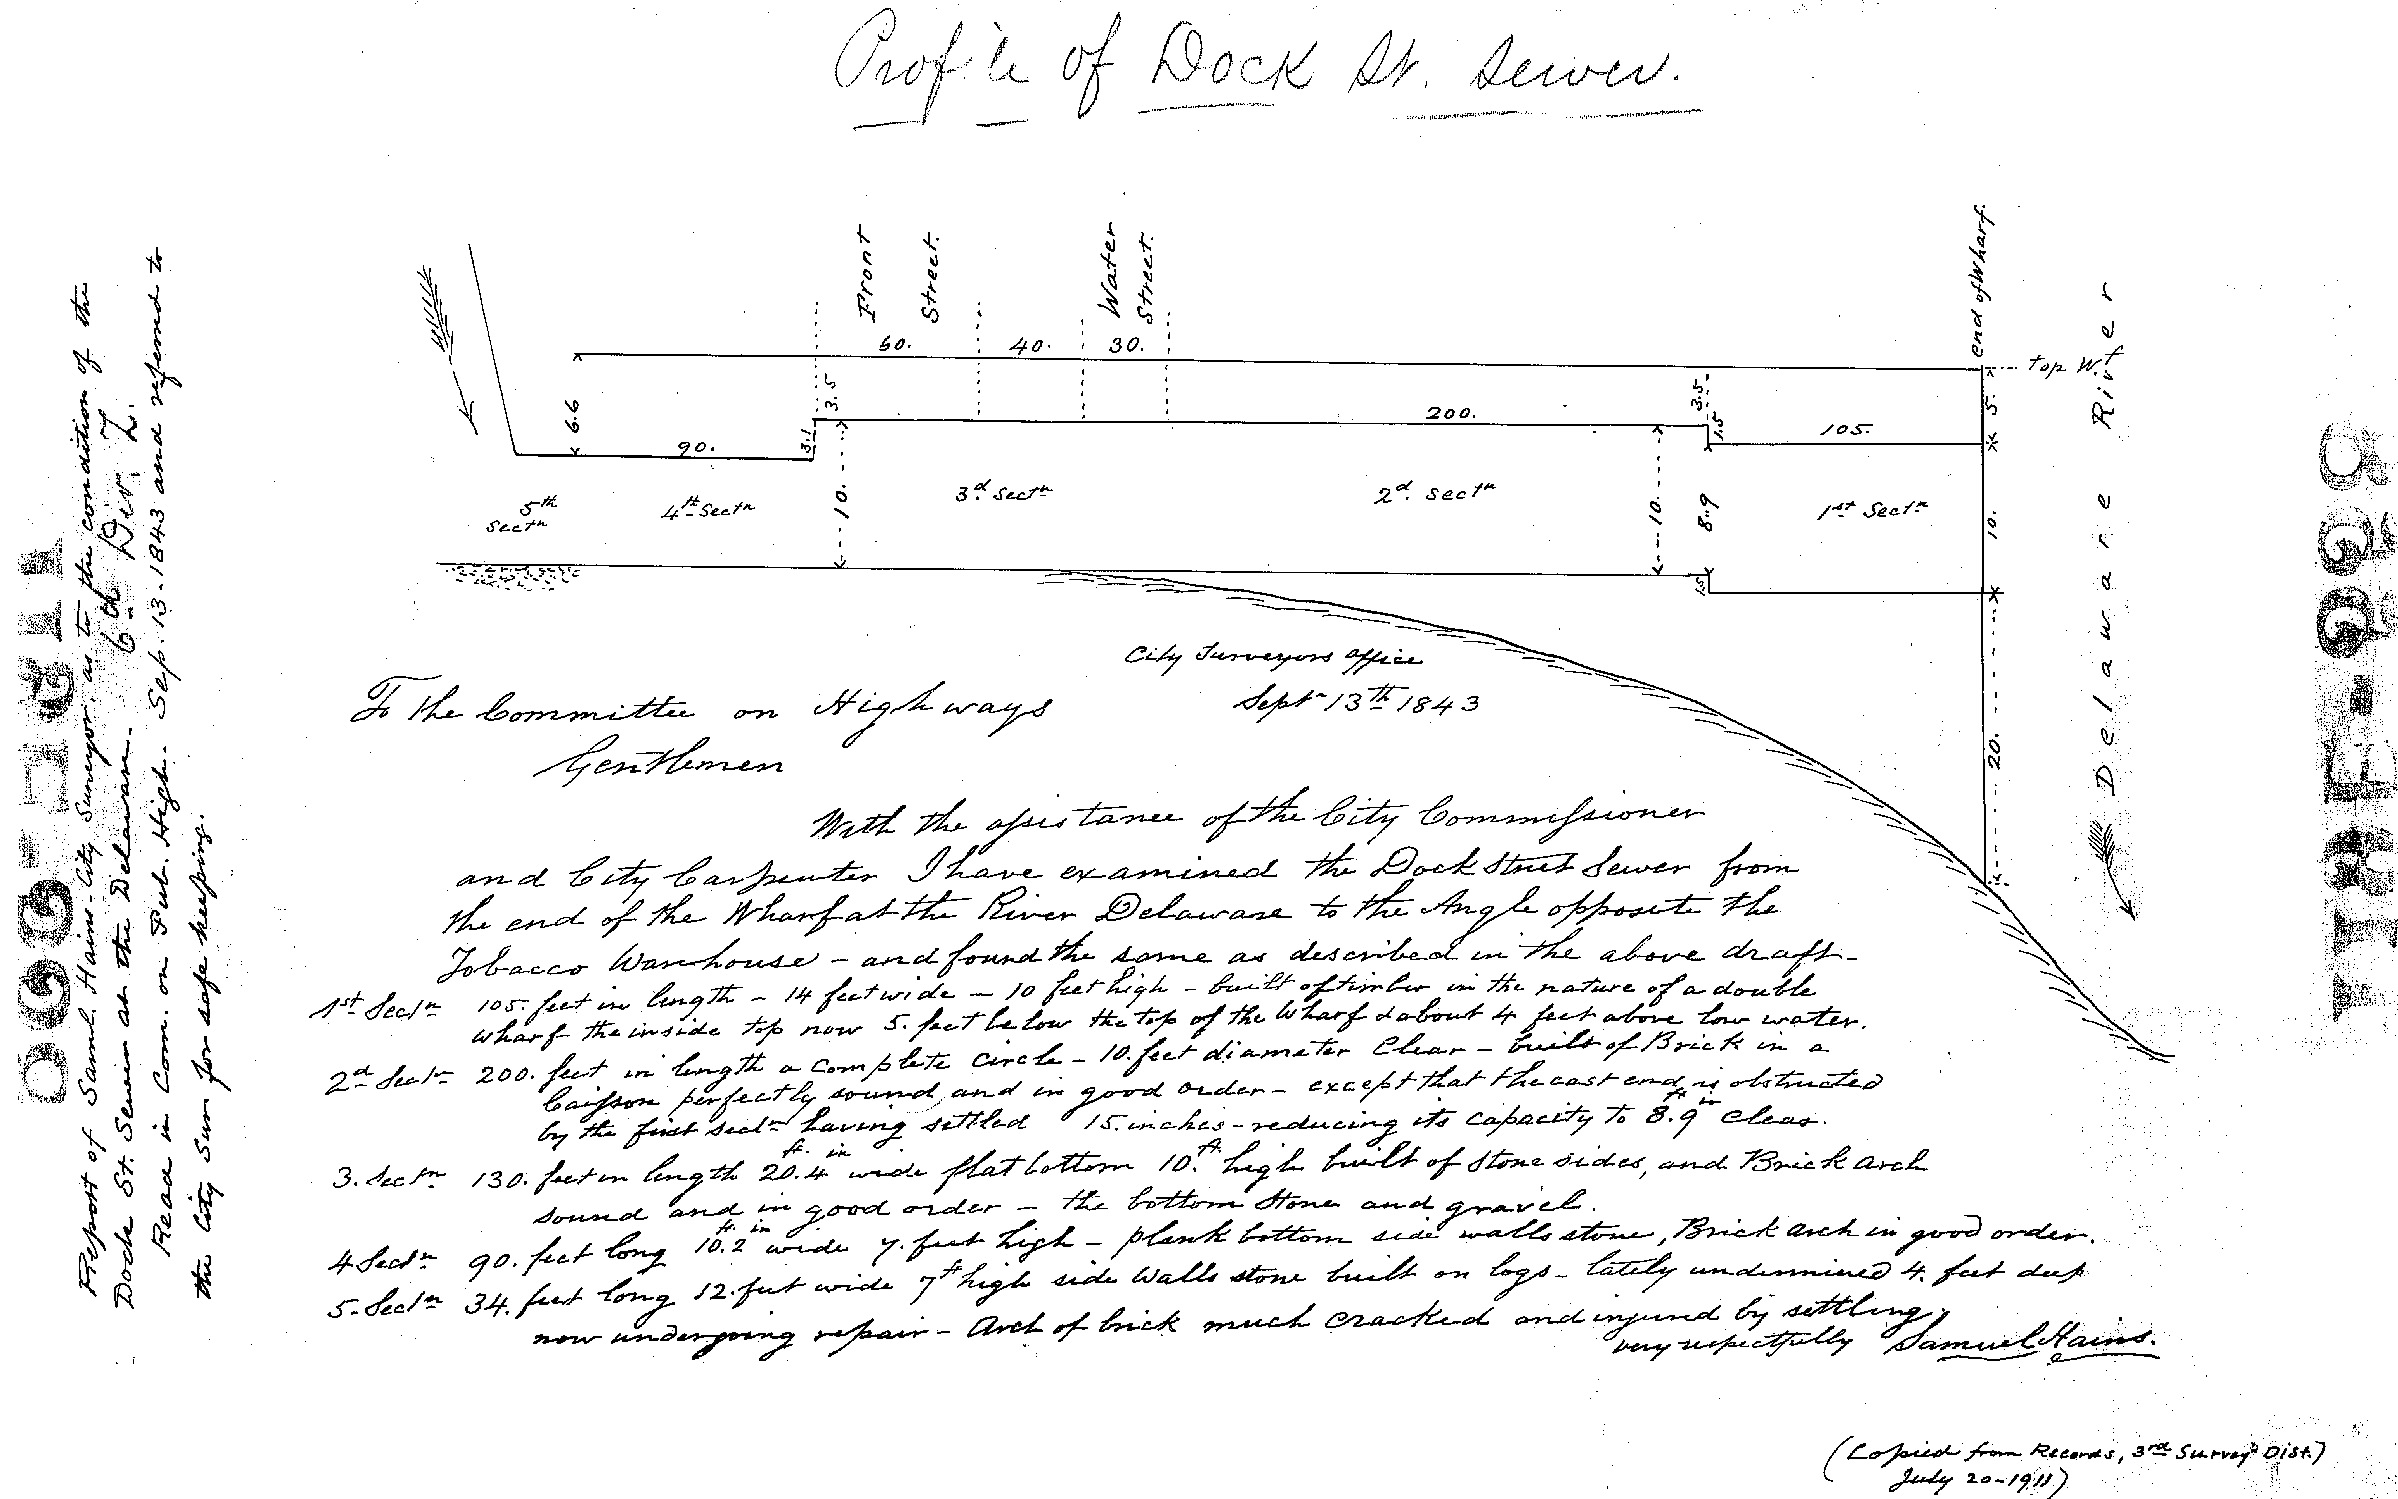 Profile of Dock St. Sewer.
Front
Street.
Water
Street.
end of Wharf.
60.
40.
30.
top W.f
6.6
3.5
3.5
5.
90.
3.1
200.
1.5
105.
Delaware River
5th
Sectn
4th Sectn
10.
3d Sectn
2d. Sectn
10.
8..9
1st Sectn
10.
1.5
20.
City Surveyors office
Septr 13th 1843
To the Committee on Highways
Gentlemen
With the assistance of the City Commissioner
and City Carpenter I have examined the Dock Street Sewer from
the end of the Wharf at the River Delaware to the Angle opposite the
Tobacco Warehouse - and found the same as described in the above draft -
1st Sectn 105. feet in length - 14 feet wide - 10 feet high - built of timber in the nature of a double
wharf the inside top now 5. feet below the top of the Wharf & about 4 feet above low water.
2d Sectn 200. feet in length a complete circle - 10. feet diameter Clear - built of Brick in a
Caisson perfectly sound and in good order - except that the east end is obstructed
by the first sectn having settled 15. inches - reducing its capacity to 8.ft 9in clear.
3. Sectn 130. feet in length 20.ft 4in wide flat bottom 10.ft high built of stone sides, and Brick arch
sound and in good order - the bottom stone and gravel.
4 Sectn 90. feet long 10.ft 2in wide 7. feet high - plank bottom side walls stone, Brick arch in good order.
5. Sectn 34. feet long 12. feet wide 7ft high side Walls stone built on logs - lately undermined 4. feet deep
now undergoing repair - Arch of brick much cracked and injured by settling,
very respectfully Samuel Hains.
(Copied from Records, 3rd Survey Dist.)
July 20-1911)
Report of Saml. Hains - City Surveyor, as to the condition of the
Dock St. Sewer at the Delaware. 6th Div. L.
Read in Com. on Pub. High. Sep. 13. 1843 and referred to
the City Surv for safe keeping.